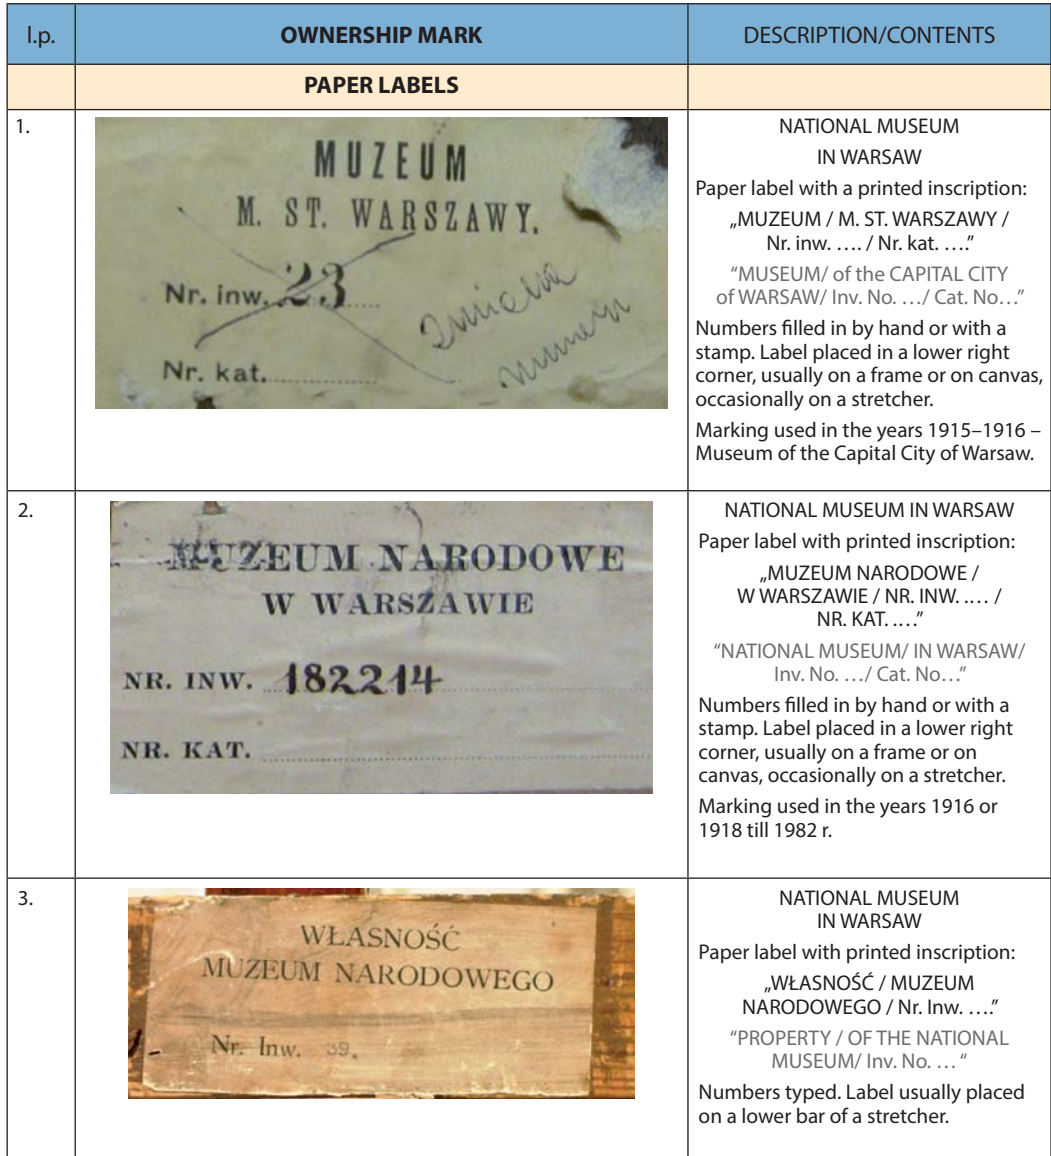 l.p.
OWNERSHIP MARK
DESCRIPTION/CONTENTS
PAPER LABELS
1.
MUZEUM
M. ST. WARSZAWY.
Nr. inw. 23
Nr. kat.
NATIONAL MUSEUM
IN WARSAW
Paper label with a printed inscription:
„MUZEUM / M. ST. WARSZAWY /
Nr. inw. …. / Nr. kat. ….”
“MUSEUM/ of the CAPITAL CITY
of WARSAW/ Inv. No. …/ Cat. No…”
Numbers filled in by hand or with a
stamp. Label placed in a lower right
corner, usually on a frame or on canvas,
occasionally on a stretcher.
Marking used in the years 1915–1916 –
Museum of the Capital City of Warsaw.
2.
MUZEUM NARODOWE
W WARSZAWIE
NR. INW. 182214
NR. KAT.
NATIONAL MUSEUM IN WARSAW
Paper label with printed inscription:
„MUZEUM NARODOWE /
W WARSZAWIE / NR. INW. …. /
NR. KAT. ….”
“NATIONAL MUSEUM/ IN WARSAW/
Inv. No. …/ Cat. No…”
Numbers filled in by hand or with a
stamp. Label placed in a lower right
corner, usually on a frame or on
canvas, occasionally on a stretcher.
Marking used in the years 1916 or
1918 till 1982 r.
3.
WŁASNOŚĆ
MUZEUM NARODOWEGO
Nr. Inw. 39.
NATIONAL MUSEUM
IN WARSAW
Paper label with printed inscription:
„WŁASNOŚĆ / MUZEUM
NARODOWEGO / Nr. Inw. ….”
“PROPERTY / OF THE NATIONAL
MUSEUM/ Inv. No. … “
Numbers typed. Label usually placed
on a lower bar of a stretcher.